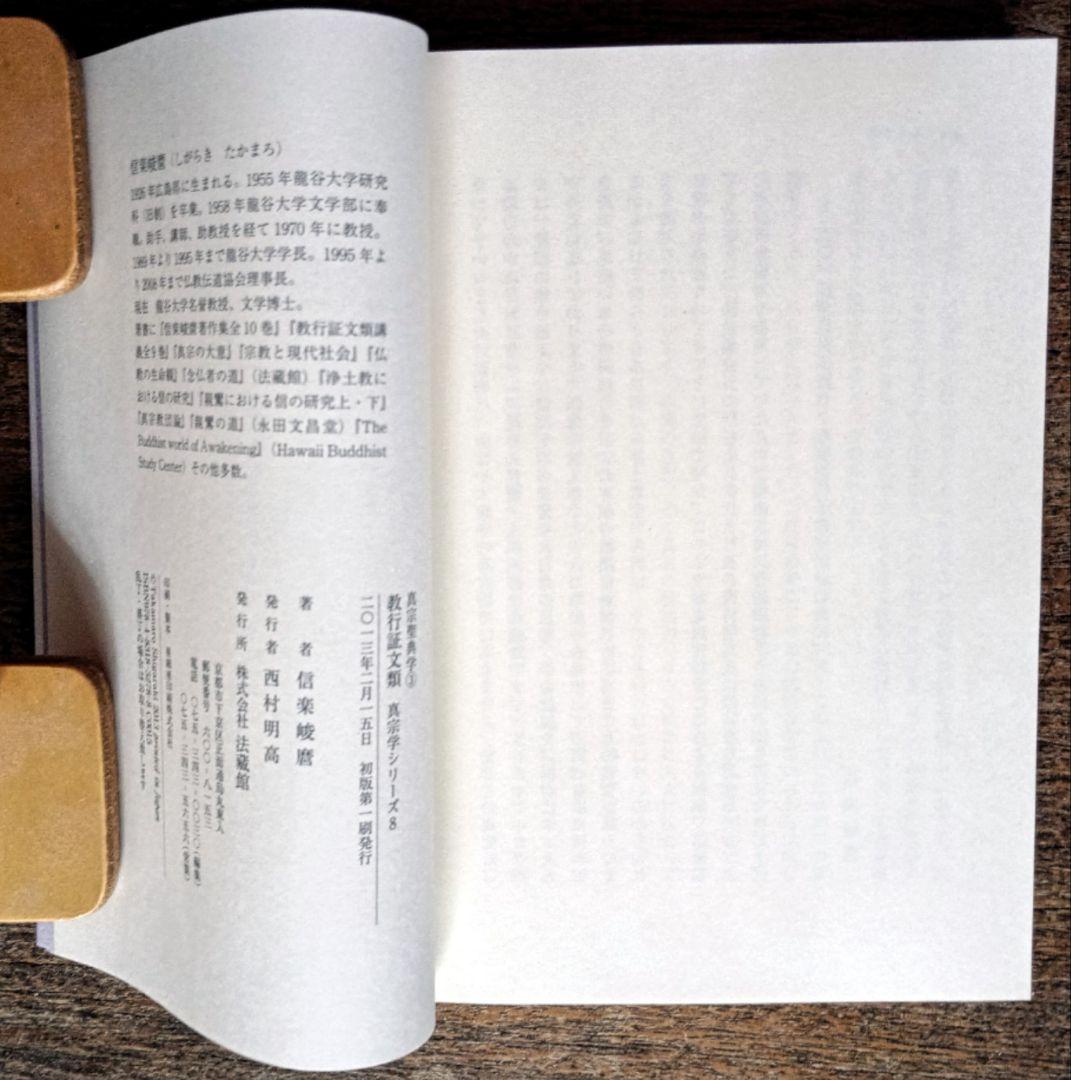 信楽峻麿（しがらき　たかまろ）
1926年広島県に生まれる。1955年龍谷大学研究
科（旧制）を卒業。1958年龍谷大学文学部に奉
職。助手、講師、助教授を経て1970年に教授。
1989年より1995年まで龍谷大学学長。1995年よ
り2008年まで仏教伝道協会理事長。
現在　龍谷大学名誉教授、文学博士。
著書に『信楽峻麿著作集全10巻』『教行証文類講
義全9巻』『真宗の大意』『宗教と現代社会』『仏
教の生命観』『念仏者の道』（法蔵館）『浄土教に
おける信の研究』『親鸞における信の研究上・下』
『真宗教団論』『親鸞の道』（永田文昌堂）『The
Buddhist world of Awakening』（Hawaii Buddhist
Study Center）その他多数。
真宗聖典学③
教行証文類　真宗学シリーズ8
二〇一三年二月一五日　初版第一刷発行
著者　信楽峻麿
発行者　西村明高
発行所　株式会社 法藏館
京都市下京区正面通烏丸東入
郵便番号　六〇〇-八一五三
電話　〇七五-三四三-〇〇三〇（編集）
〇七五-三四三-五六五六（営業）
印刷・製本　亜細亜印刷株式会社
© Takamaro Shigaraki 2013 printed in Japan
乱丁・落丁の場合はお取り替え致します